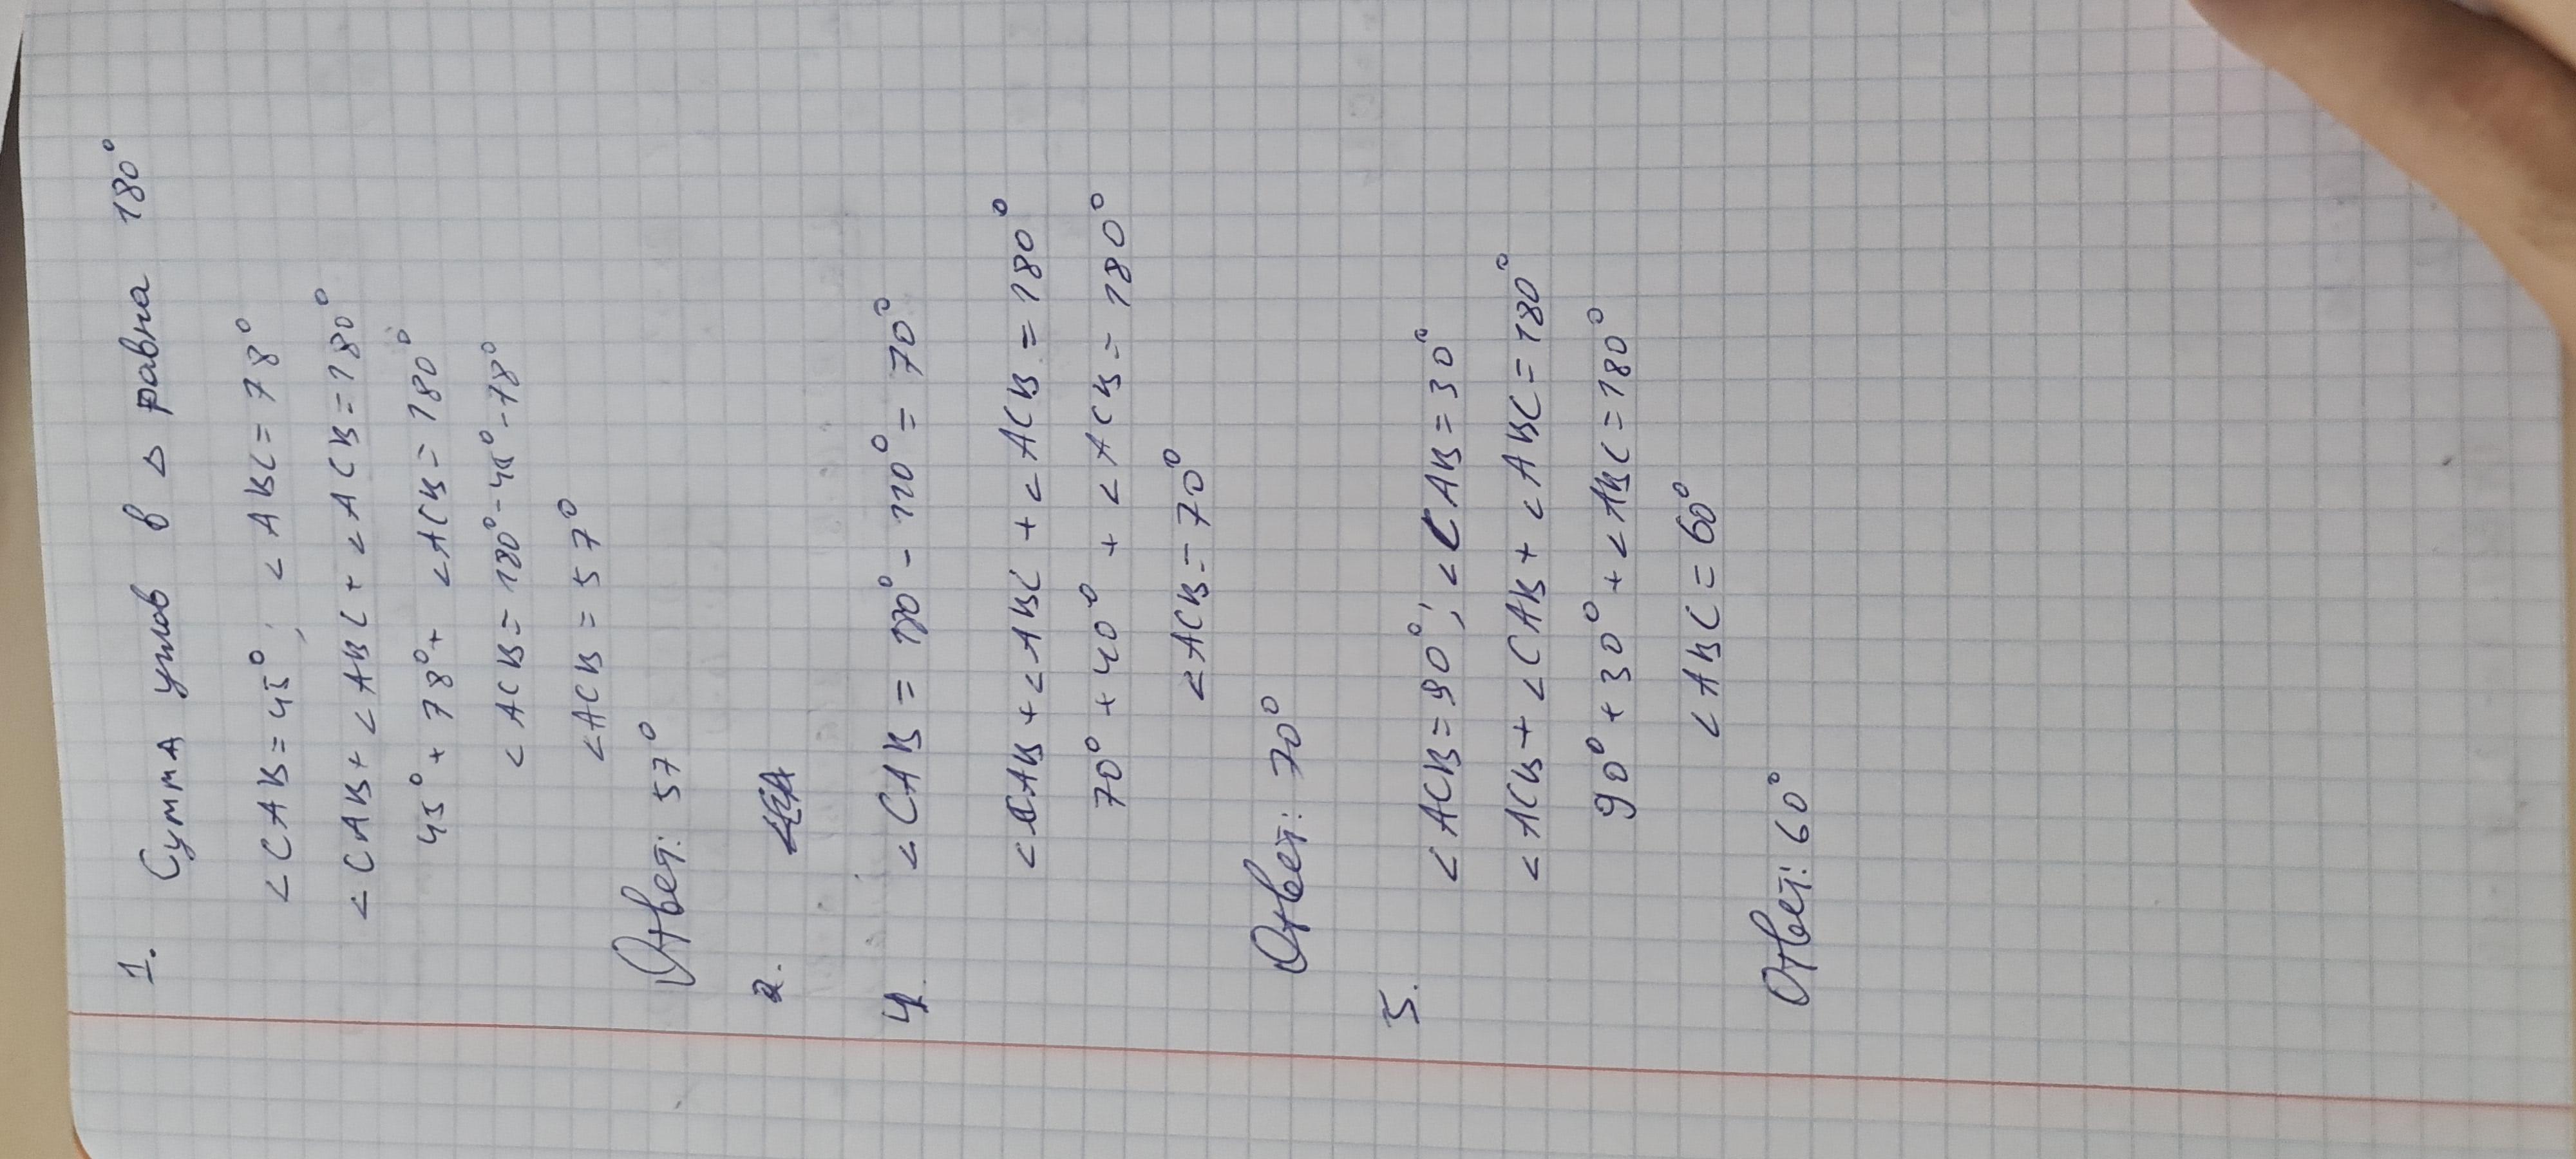 1. Сумма углов в △ равна 180°
∠CAB = 45°; ∠ABC = 78°
∠CAB + ∠ABC + ∠ACB = 180°
45° + 78° + ∠ACB = 180°
∠ACB = 180° - 45° - 78°
∠ACB = 57°
Ответ: 57°
2.
4. ∠CAB = 180° - 110° = 70°
∠CAB + ∠ABC + ∠ACB = 180°
70° + 40° + ∠ACB = 180°
∠ACB = 70°
Ответ: 70°
5. ∠ACB = 90°; ∠CAB = 30°
∠ACB + ∠CAB + ∠ABC = 180°
90° + 30° + ∠ABC = 180°
∠ABC = 60°
Ответ: 60°